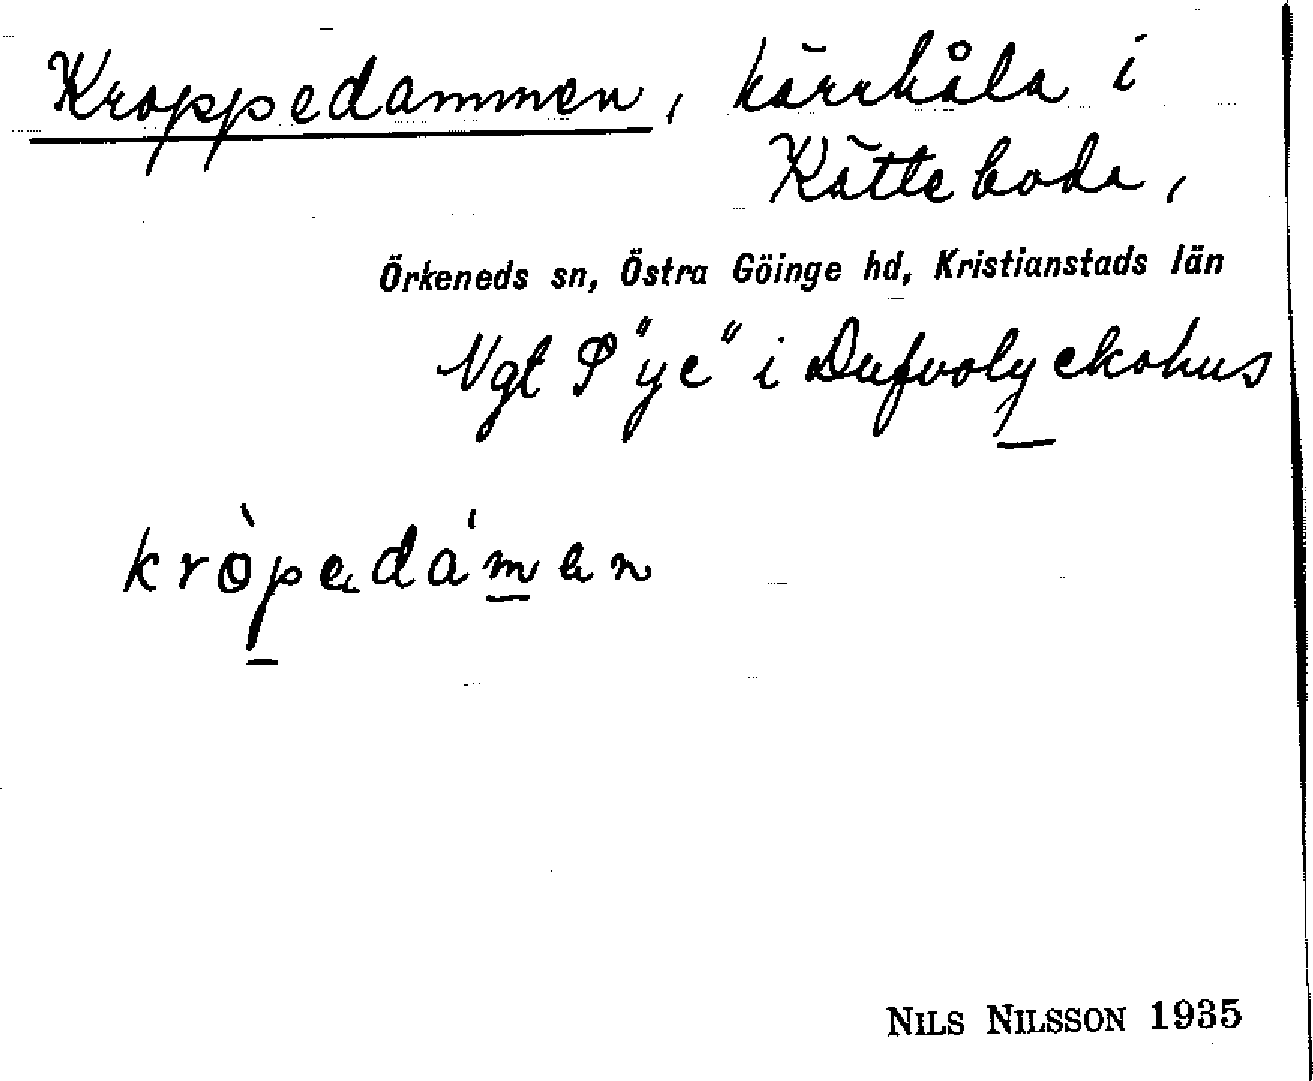 Kroppedammen, kärrhåla i
Kätteboda,
Örkeneds sn, Östra Göinge hd, Kristianstads län
Ngt S "ye" i Dufvolyckohus
kròpedámen
NILS NILSSON 1935